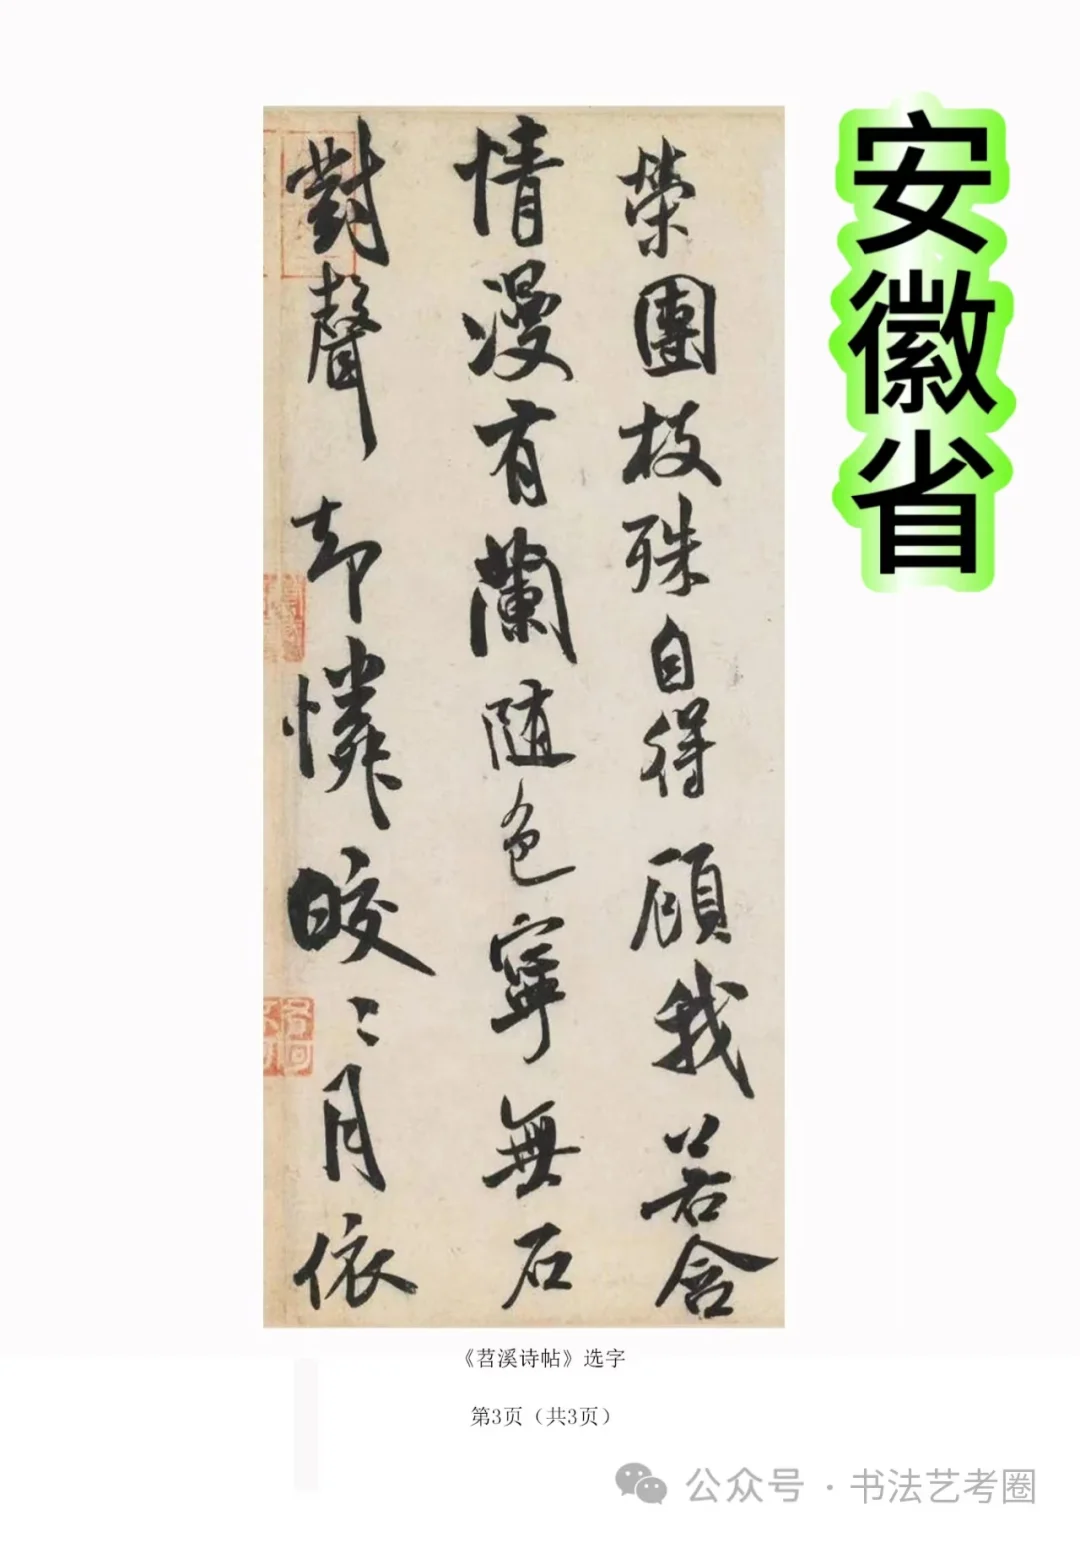 安徽省
榮團枝殊自得顧我若含
情漫有蘭随色寧無石
對聲却憐皎〻月依
《苕溪诗帖》选字
第3页（共3页）
公众号 · 书法艺考圈